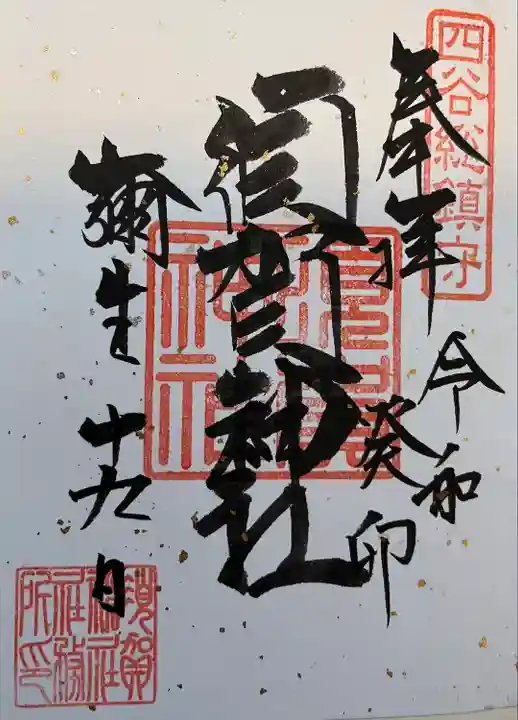 四谷総鎮守
奉拝
令和
癸卯
須賀神社
須賀神社
彌生十九日
須賀
神社
社務
所印